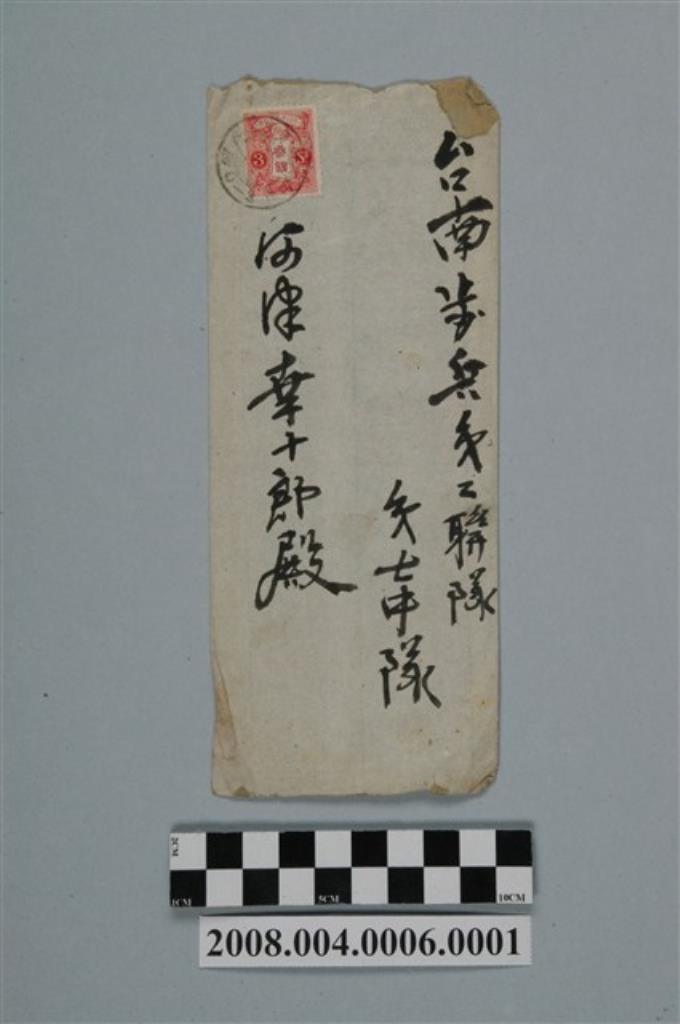 台南歩兵第二聯隊
第七中隊
河津幸十郎殿
3
2CM
1CM
5CM
10CM
2008.004.0006.0001